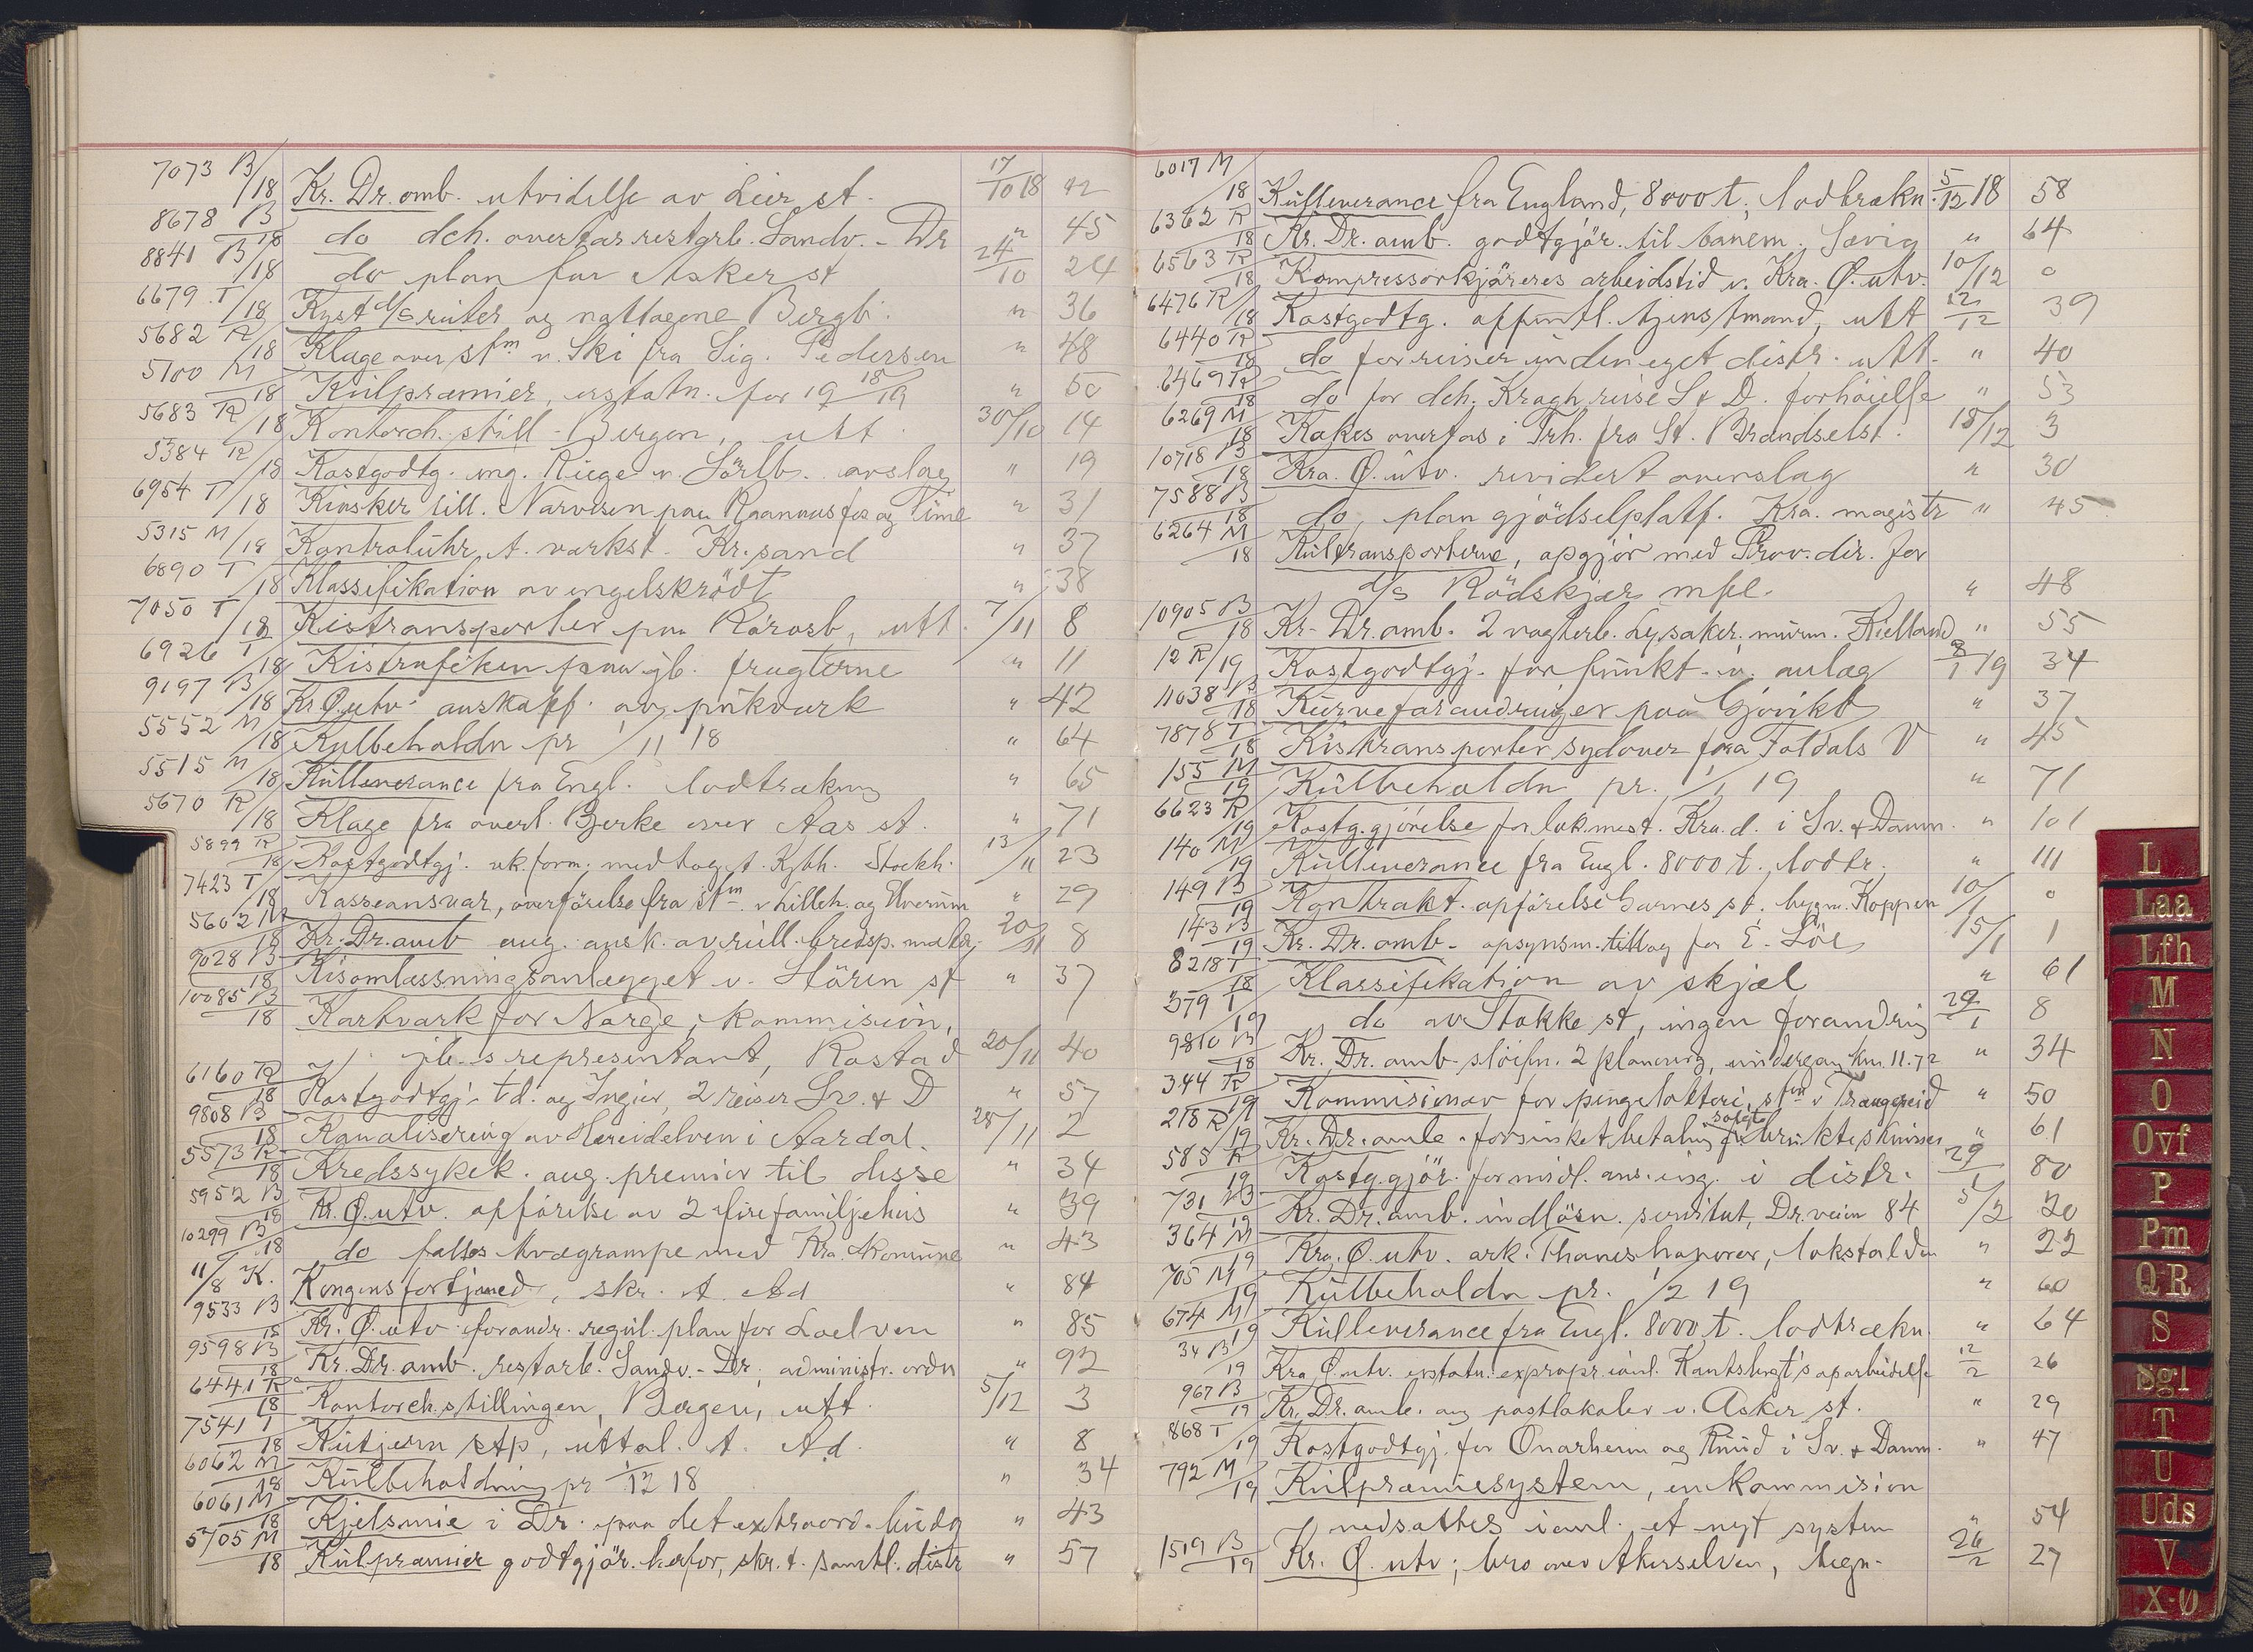 7073 B/18 Kr. Dr. omb. utvidelse av Lier st. 17/10 18 42
8678 B/18 do dch. overtar restarb. Sandv. - Dr " 45
8841 B/18 do plan for Asker st 24/10 24
6679 T/18 Kyst d/s ruter og nattogene Bergb. " 36
5682 R/18 Klage over stm v. Ski fra Sig. Pedersen " 48
5100 M/18 Kulpræmier, erstatn. for 19 18/19 " 50
5683 R/18 Kontorch. still - Bergen, utt. 30/10 14
5384 R/18 Kostgodtg. ing. Riege v. Sörlb. avslag " 19
6954 T/18 Kiosker till. Narvesen paa Raanaasfos og Time " 31
5315 M/18 Kontroluhr t. verkst. Kr.sand " 37
6890 T/18 Klassifikation av engelskrödt " 38
7050 T/18 Kistransporter paa Rörosb, utt. 7/11 8
6926 T/18 Kistrafiken paa jb. fragterne " 11
9197 B/18 Kr. Ø. utv. anskaff. av pukverk " 42
5552 M/18 Kulbeholdn pr 1/11 18 " 64
5515 M/18 Kulleverance fra Engl. lodtrækning " 65
5670 R/18 Klage fra overl. Bjerke over Aas st. " 71
5899 R/18 Kostgodtgj. uk. form. med toget Kjbh. Stockh. 13/11 23
7423 T/18 Kasseansvar, overförelse fra stm v Lilleh. og Elverum " 29
5602 M/18 Kr. Dr. omb ang. ansk. av rull. bredsp. mater. 20/11 8
9028 B/18 Kisomlassningsanlægget v. Stören st " 37
10085 B/18 Kartverk for Norge, kommision,
jb.s representant, Rostad 20/11 40
6160 R/18 Kostgodtgj. td. og Ingier, 2 reiser Sv. & D " 57
9808 B/18 Kanalisering av Hæreidelven i Aardal 28/11 2
5573 R/18 Kredssykek. ang. premier til disse " 34
5952 B/18 Kr. Ø. utv. opförelse av 2 firefamiljehus " 39
10299 B/18 do fælles kvægrampe med Kra. Komune " 43
11/8 K. Kongens fortjmed, skr. t. Ad " 84
9533 B/18 Kr. Ø. utv. forandr. regul. plan for Loelven " 85
9598 B/18 Kr. Dr. omb. restarb. Sandv. - Dr, administr. ordn " 92
6441 R/18 Kontorch.stillingen, Bergen, utt. 5/12 3
7541 T/18 Kutjern stp, uttal. t. Ad. " 8
6062 M/18 Kulbeholdning pr 1/12 18 " 34
6061 M/18 Kjelsmie i Dr. paa det extraord. budg " 43
5705 M/18 Kulpræmier godtgjör. herfor, skr. t. samtl. distr " 57
6017 M/18 Kulleverance fra England, 8000 t, lodtrækn. 5/12 18 58
6362 R/18 Kr. Dr. omb. godtgjör. til banem. Sævig " 64
6563 R/18 Kompressorkjöreres arbeidstid v. Kra. Ø. utv. 10/12 0
6476 R/18 Kostgodtg. offentl. tjenstmænd, utt 12/12 39
6440 R/18 do for reiser inden eget distr. utt. " 40
6469 R/18 do for dch. Kragh reise S & D. forhöielse " 53
6269 M/18 Kokes overtas i Trh. fra St. Brændselst. 18/12 3
10718 B/18 Kra. Ø. utv. revidert overslag " 30
7588 B/18 do, plan gjödselplatf. Kra. magistr " 45
6264 M/18 Kultransporterne, opgjör med Prov. dir. for
d/s Rödskjær mfl. " 48
10905 B/18 Kr. Dr. omb. 2 vagterb. Lysaker, murm. Kielland " 55
12 R/19 Kostgodtgj. for funkt. v. anlæg 8/1 19 34
11038 B/18 Kurveforandringer paa Gjövikb " 37
7878 T/18 Kistransporter sydover fra Foldals V " 45
155 M/19 Kulbeholdn pr. 1/1 19 " 71
6623 R/19 Kostg.gjörelse for lok.mest. Kra. d. i Sv. & Danm. " 101
140 M/19 Kulleverance fra Engl. 8000 t, lodtr. " 111
149 B/19 Kontrakt. opförelse Garnes st. bygm. Koppen 10/1 0
143 B/19 Kr. Dr. omb. opsynsm. tillæg for E. Löe 15/1 1
8218 T/18 Klassifikation av skjæl " 61
379 T/19 do av Stokke st, ingen forandring 29/1 8
9810 B/18 Kr. Dr. omb. slöifn. 2 planoverg, undergang km. 11.72 " 34
344 R/19 Kommisionær for pengelotteri, stm v Trængereid " 50
218 R/19 Kr. Dr. omb. forsinket betaling solgte brukte skinner " 61
585 R/19 Kostg.gjör. for midl. ans. ing. i distr. 29/1 80
731 B/19 Kr. Dr. omb. indlösn. servitut, Dr. veien 84 5/2 20
364 M/19 Kra. Ø. utv. ark. Thanes honorar, lokstalden " 22
705 M/19 Kulbeholdn pr. 1/2 19 " 60
674 M/19 Kulleverance fra Engl. 8000 t. lodtrækn. " 64
34 B/19 Kra Ø. utv. erstatn. expropr. ianl. opparbeidelse 12/2 26
967 B/19 Kr. Dr. omb. ang postlokaler v. Asker st. " 29
868 T/19 Kostgodtgj. for Onarheim og Ruud i Sv. & Danm. " 47
792 M/19 Kulpræmiesystem, en kommision
nedsættes ianl. et nyt system " 54
1519 B/19 Kr. Ø. utv; bro over Akerselven, begn. 26/2 27
L
Laa
Lfh
M
N
O
Ovf
P
Pm
QR
S
Sgl
T
U
Uds
V
X-Ø